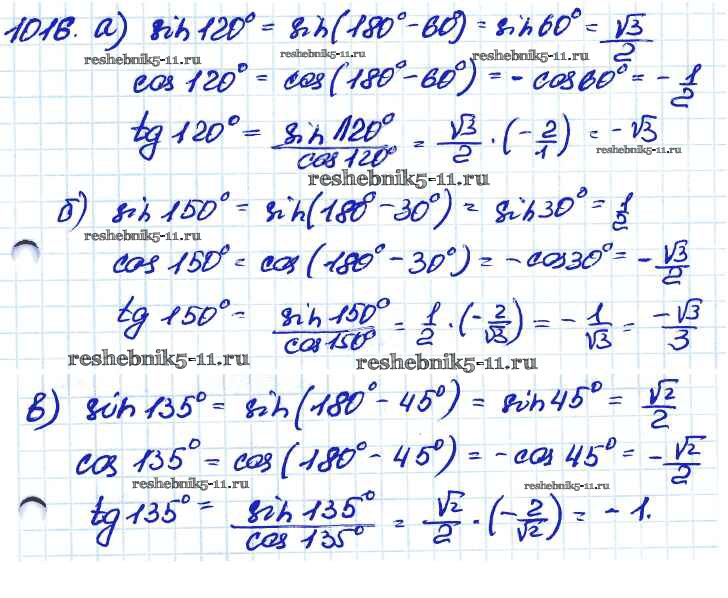 1016. а) sin 120° = sin(180° - 60°) = sin 60° = √3/2
reshebnik5-11.ru reshebnik5-11.ru reshebnik5-11.ru
cos 120° = cos(180° - 60°) = - cos 60° = - 1/2
tg 120° = sin 120°/cos 120° = √3/2 · (- 2/1) = - √3
reshebnik5-11.ru
reshebnik5-11.ru
б) sin 150° = sin(180° - 30°) = sin 30° = 1/2
reshebnik5-11.ru
cos 150° = cos(180° - 30°) = - cos 30° = - √3/2
tg 150° = sin 150°/cos 150° = 1/2 · (- 2/√3) = - 1/√3 = -√3/3
reshebnik5-11.ru reshebnik5-11.ru
в) sin 135° = sin(180° - 45°) = sin 45° = √2/2
cos 135° = cos(180° - 45°) = - cos 45° = - √2/2
reshebnik5-11.ru reshebnik5-11.ru
tg 135° = sin 135°/cos 135° = √2/2 · (- 2/√2) = - 1.